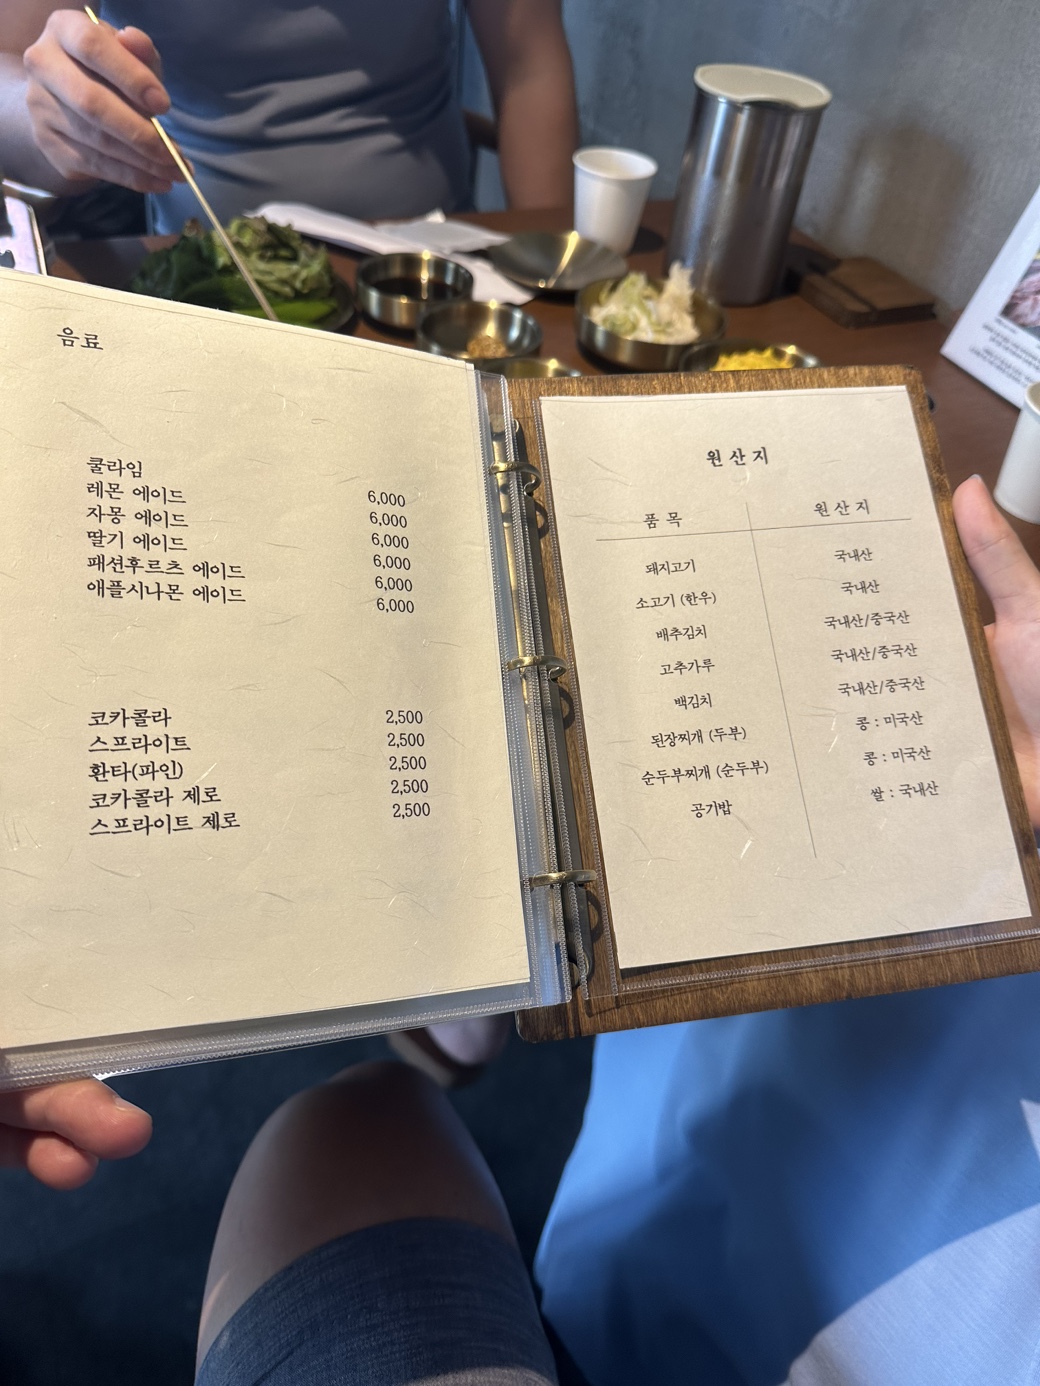 음료
쿨라임 6,000
레몬 에이드 6,000
자몽 에이드 6,000
딸기 에이드 6,000
패션후르츠 에이드 6,000
애플시나몬 에이드 6,000
코카콜라 2,500
스프라이트 2,500
환타(파인) 2,500
코카콜라 제로 2,500
스프라이트 제로 2,500
원산지
품목 원산지
돼지고기 국내산
소고기 (한우) 국내산
배추김치 국내산/중국산
고추가루 국내산/중국산
백김치 국내산/중국산
된장찌개 (두부) 콩 : 미국산
순두부찌개 (순두부) 콩 : 미국산
공기밥 쌀 : 국내산